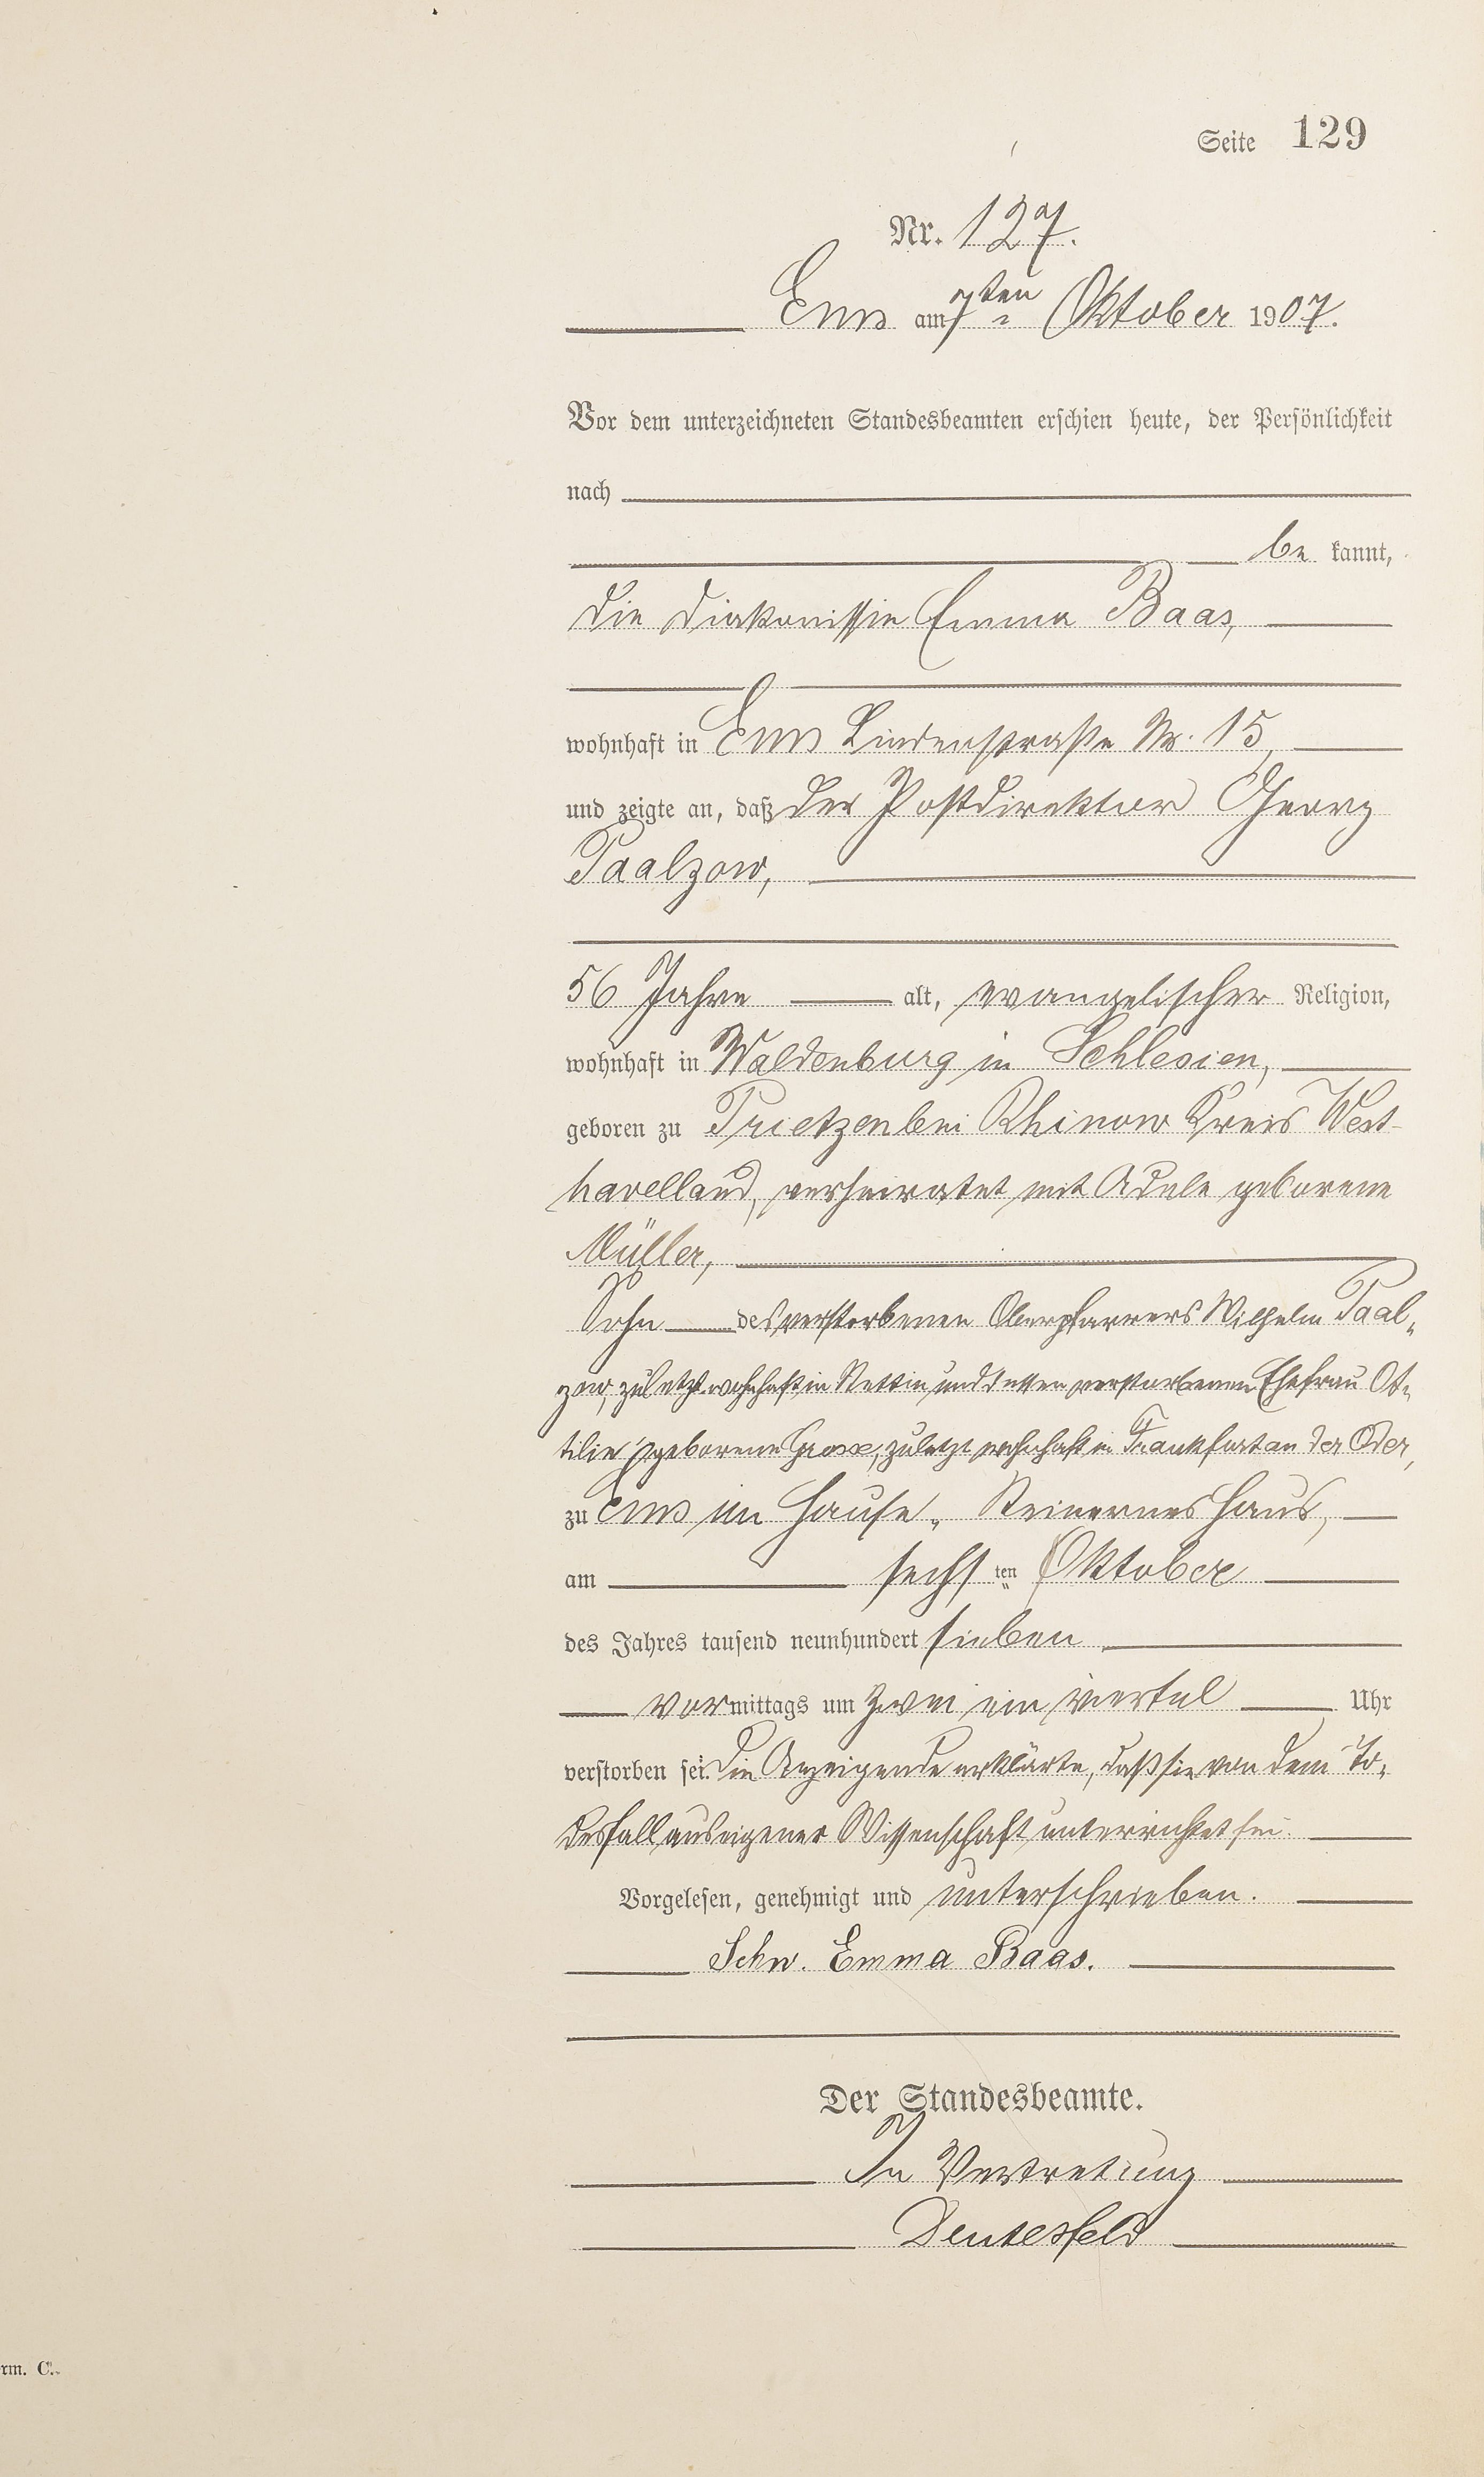 Seite 129
Nr. 127.
Ems am 7ten Oktober 1907.
Vor dem unterzeichneten Standesbeamten erschien heute, der Persönlichkeit
nach
be kannt,
die Diakonissin Emma Baas,
wohnhaft in Ems Lindenstraße Nr. 15,
und zeigte an, daß der Postdirektor Georg
Paalzow,
56 Jahre alt, evangelischer Religion,
wohnhaft in Waldenburg in Schlesien,
geboren zu Prietzen bei Rhinow Kreis West-
havelland, verheiratet mit Adele geborene
Müller,
Sohn des verstorbenen Oberpfarrers Wilhelm Paal-
zow, zuletzt wohnhaft in Stettin und dessen verstorbenen Ehefrau Ot-
tilie geborene Grosse, zuletzt wohnhaft in Frankfurt an der Oder,
zu Ems im Hause „Steinernes Haus,
am sechs ten Oktober
des Jahres tausend neunhundert sieben
vor mittags um zwei ein viertel Uhr
verstorben sei. Die Anzeigende erklärte, daß sie von dem To-
desfall aus eigener Wissenschaft unterrichtet sei.
Vorgelesen, genehmigt und unterschrieben.
Schw. Emma Baas.
Der Standesbeamte.
In Vertretung
Deutesfeld
rm. C.